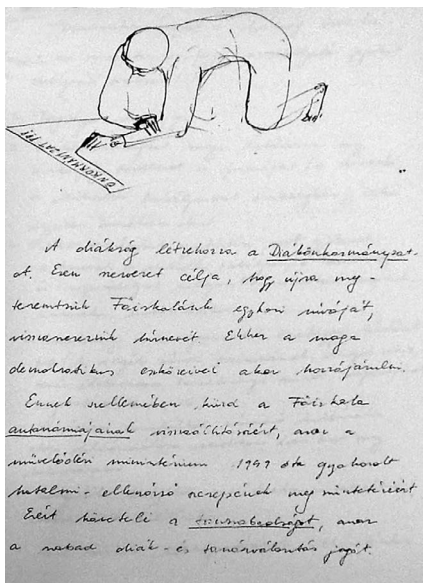 ÖNKORMÁNYZAT !!!
A diákság létrehozza a Diákönkormányzat-
ot. Ezen szervezet célja, hogy újra meg-
teremtsük Főiskolánk egykori nívóját,
visszaszerezzük hírnevét. Ehhez a maga
demokratikus eszközeivel akar hozzájárulni.
Ennek szellemében küzd a Főiskola
autonómiájának visszaállításáért, azaz a
művelődési minisztérium 1949 óta gyakorolt
hatalmi-ellenőrző szerepének megszüntetéséért
Ezért követeli a tanszabadságot, azaz
a szabad diák- és tanárválasztás jogát.